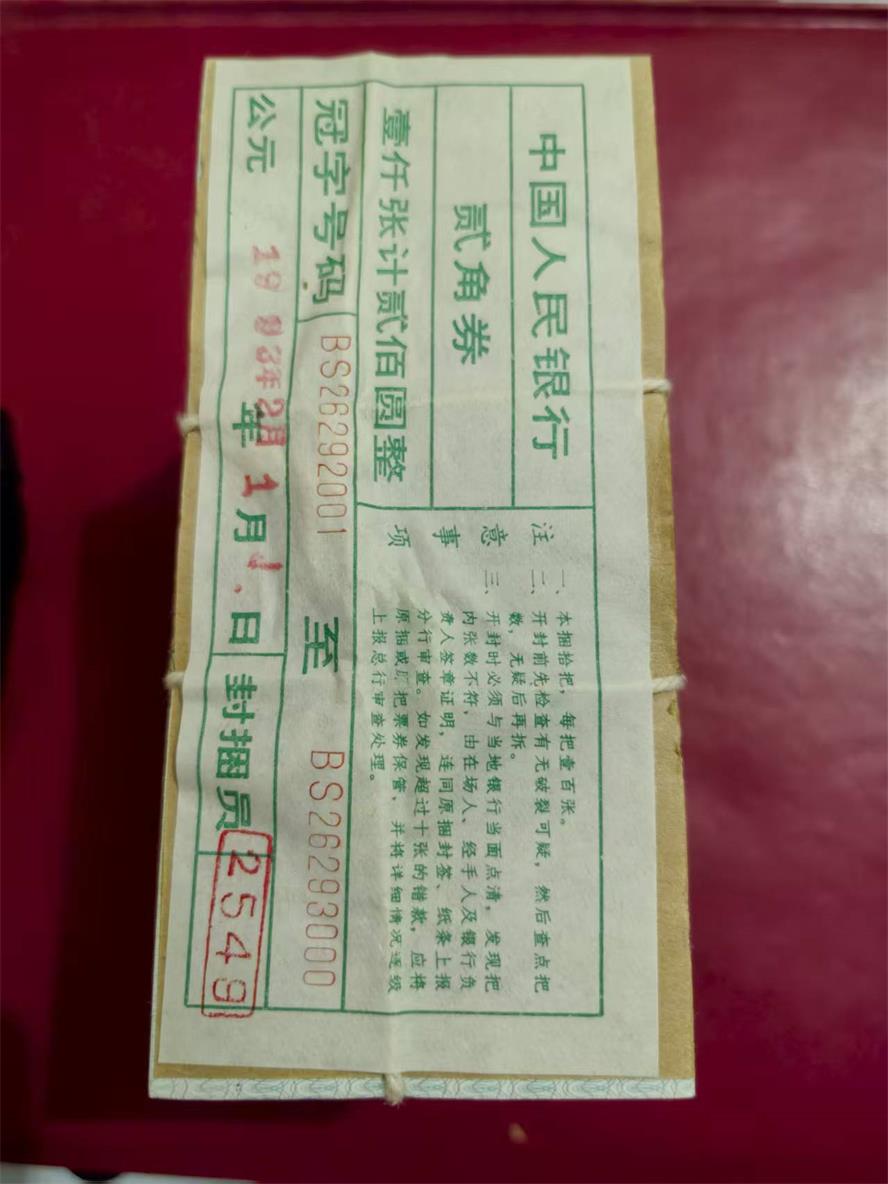 中国人民银行
贰角券
壹仟张计贰佰圆整
注意事项
一、本捆拾把，每把壹百张。
二、开封前先检查有无破裂可疑，然后查点把
数，无疑后再拆。
三、开封时必须与当地银行当面点清，发现把
内张数不符，由在场人、经手人及银行负
责人签章证明，连同原捆封签、纸条上报
分行审查。如发现超过十张的错款，应将
原捆或原把票券保管，并将详细情况逐级
上报总行审查处理。
冠字号码 BS26292001 至 BS26293000
公元 年 1 月 日 封捆员 2549